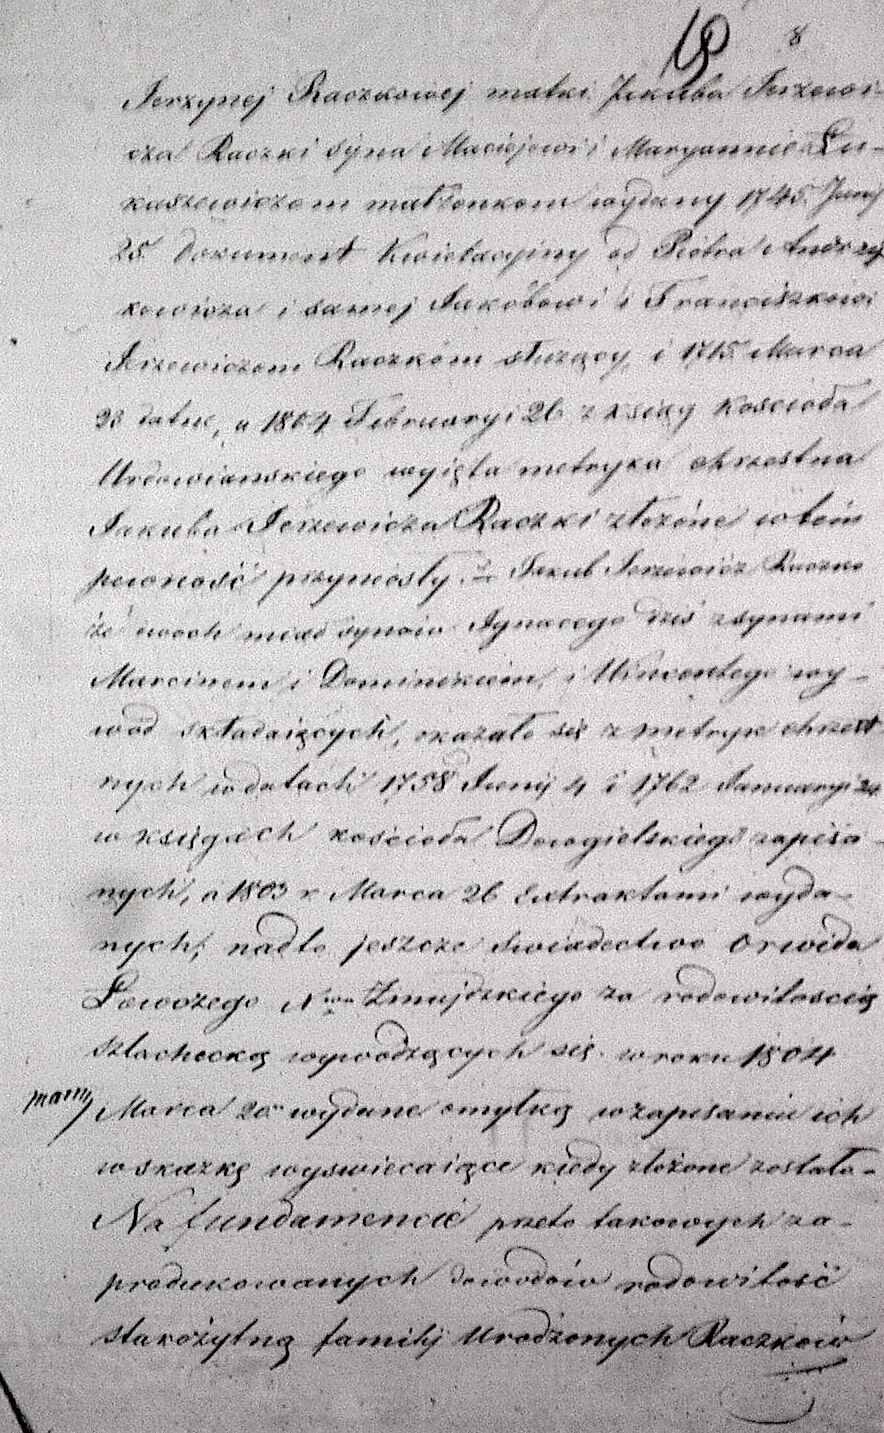 8
Jerzynej Raczkowej matki Jakuba Jerzewi-
cza Raczki syna Maciejewi i Maryannie Łu-
kaszewiczom małżonkom wydany 1745 Junij
25 dokument kwietacyiny od Piotra Andrzej
kowicza i samej Jakóbowi i Franciszkowi
Jerzewiczom Raczkóm służący, i 1715 Marca
23 datue, a 1804 February 26 z xsięgy kościoła
Urdowianskiego wyięta metryka chrzestna
Jakuba Jerzewicza Raczki złożone w tém
pewność przyniosły. Jakub Jerzewicz Raczko
że dwoch miał synów Ignacego dziś z synami
Marcinem i Dominikiem, i Wincentego wy-
wód składaiących, okazało się z metryk chrzest
nych w datach 1758 Junij 4 i 1762 January 24
w księgach kościoła Dowgielskiego zapisa-
nych, a 1803 r Marca 26 Extraktami wyda-
nych; nadto jeszcze świadectwo Orwida
Łowczego Xtwa Żmujdzkiego za rodowitością
szlachecką wywodzących się w roku 1804
Marca 20 wydane omyłką w zapisaniu ich
w skazkę wyswiecaiące kiedy złożone zostało-
Na fundamencie przeto takowych za-
produkowanych dowodów rodowitość
starożytną familij Urodzonych Raczków